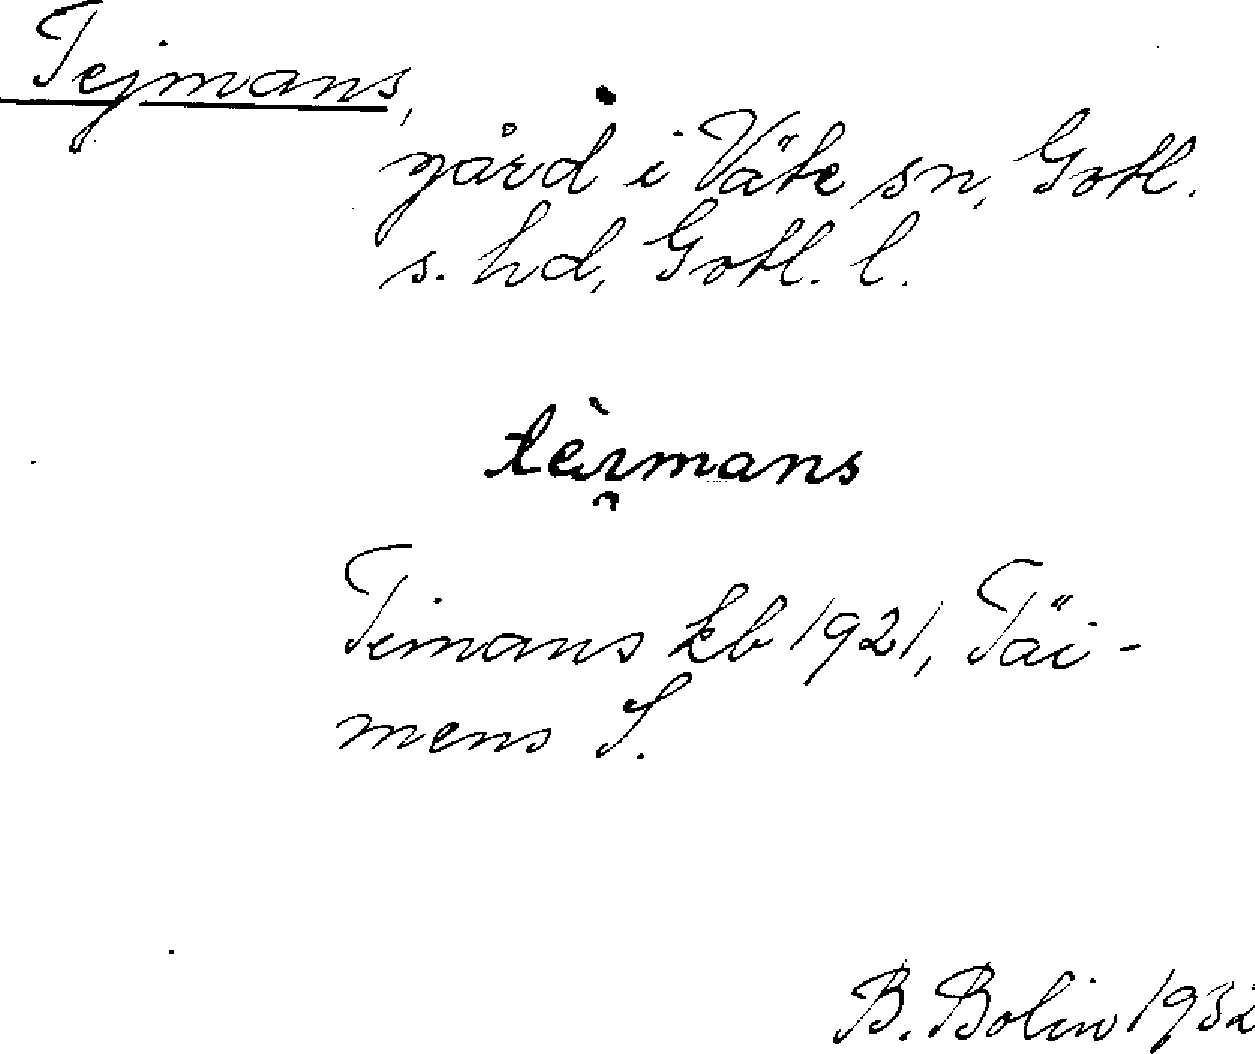 Tejmans,
gård i Väte sn, Gotl.
s. hd, Gotl. l.
Teimans kb 1921, Täi-
mens S.
B. Bolin 1932